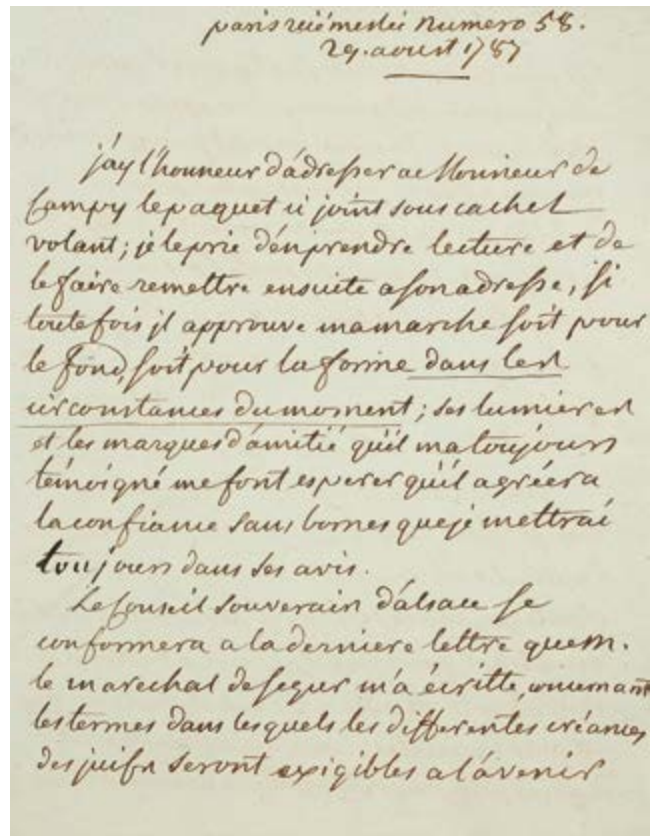 paris rüe meslée Numero 58.
29. aoust 1787
j'ay l'honneur d'adresser a Monsieur de
Campy le paquet ci joint sous cachet
volant; je le prie d'en prendre lecture et de
le faire remettre ensuite a son adresse, si
toutefois jl approuve ma marche soit pour
le fond, soit pour la forme dans les
circonstances du moment; ses lumieres
et les marques d'amitié qu'il m'a toujours
témoigné me font esperer qu'il agréera
la confiance sans bornes que je mettrai
toujours dans ses avis.
Le Conseil Souverain d'alsace se
conformera a la derniere lettre que m.
le marechal de segur m'a écritte, concernant
les termes dans lesquels les differentes créances
des juifs seront exigibles a l'avenir